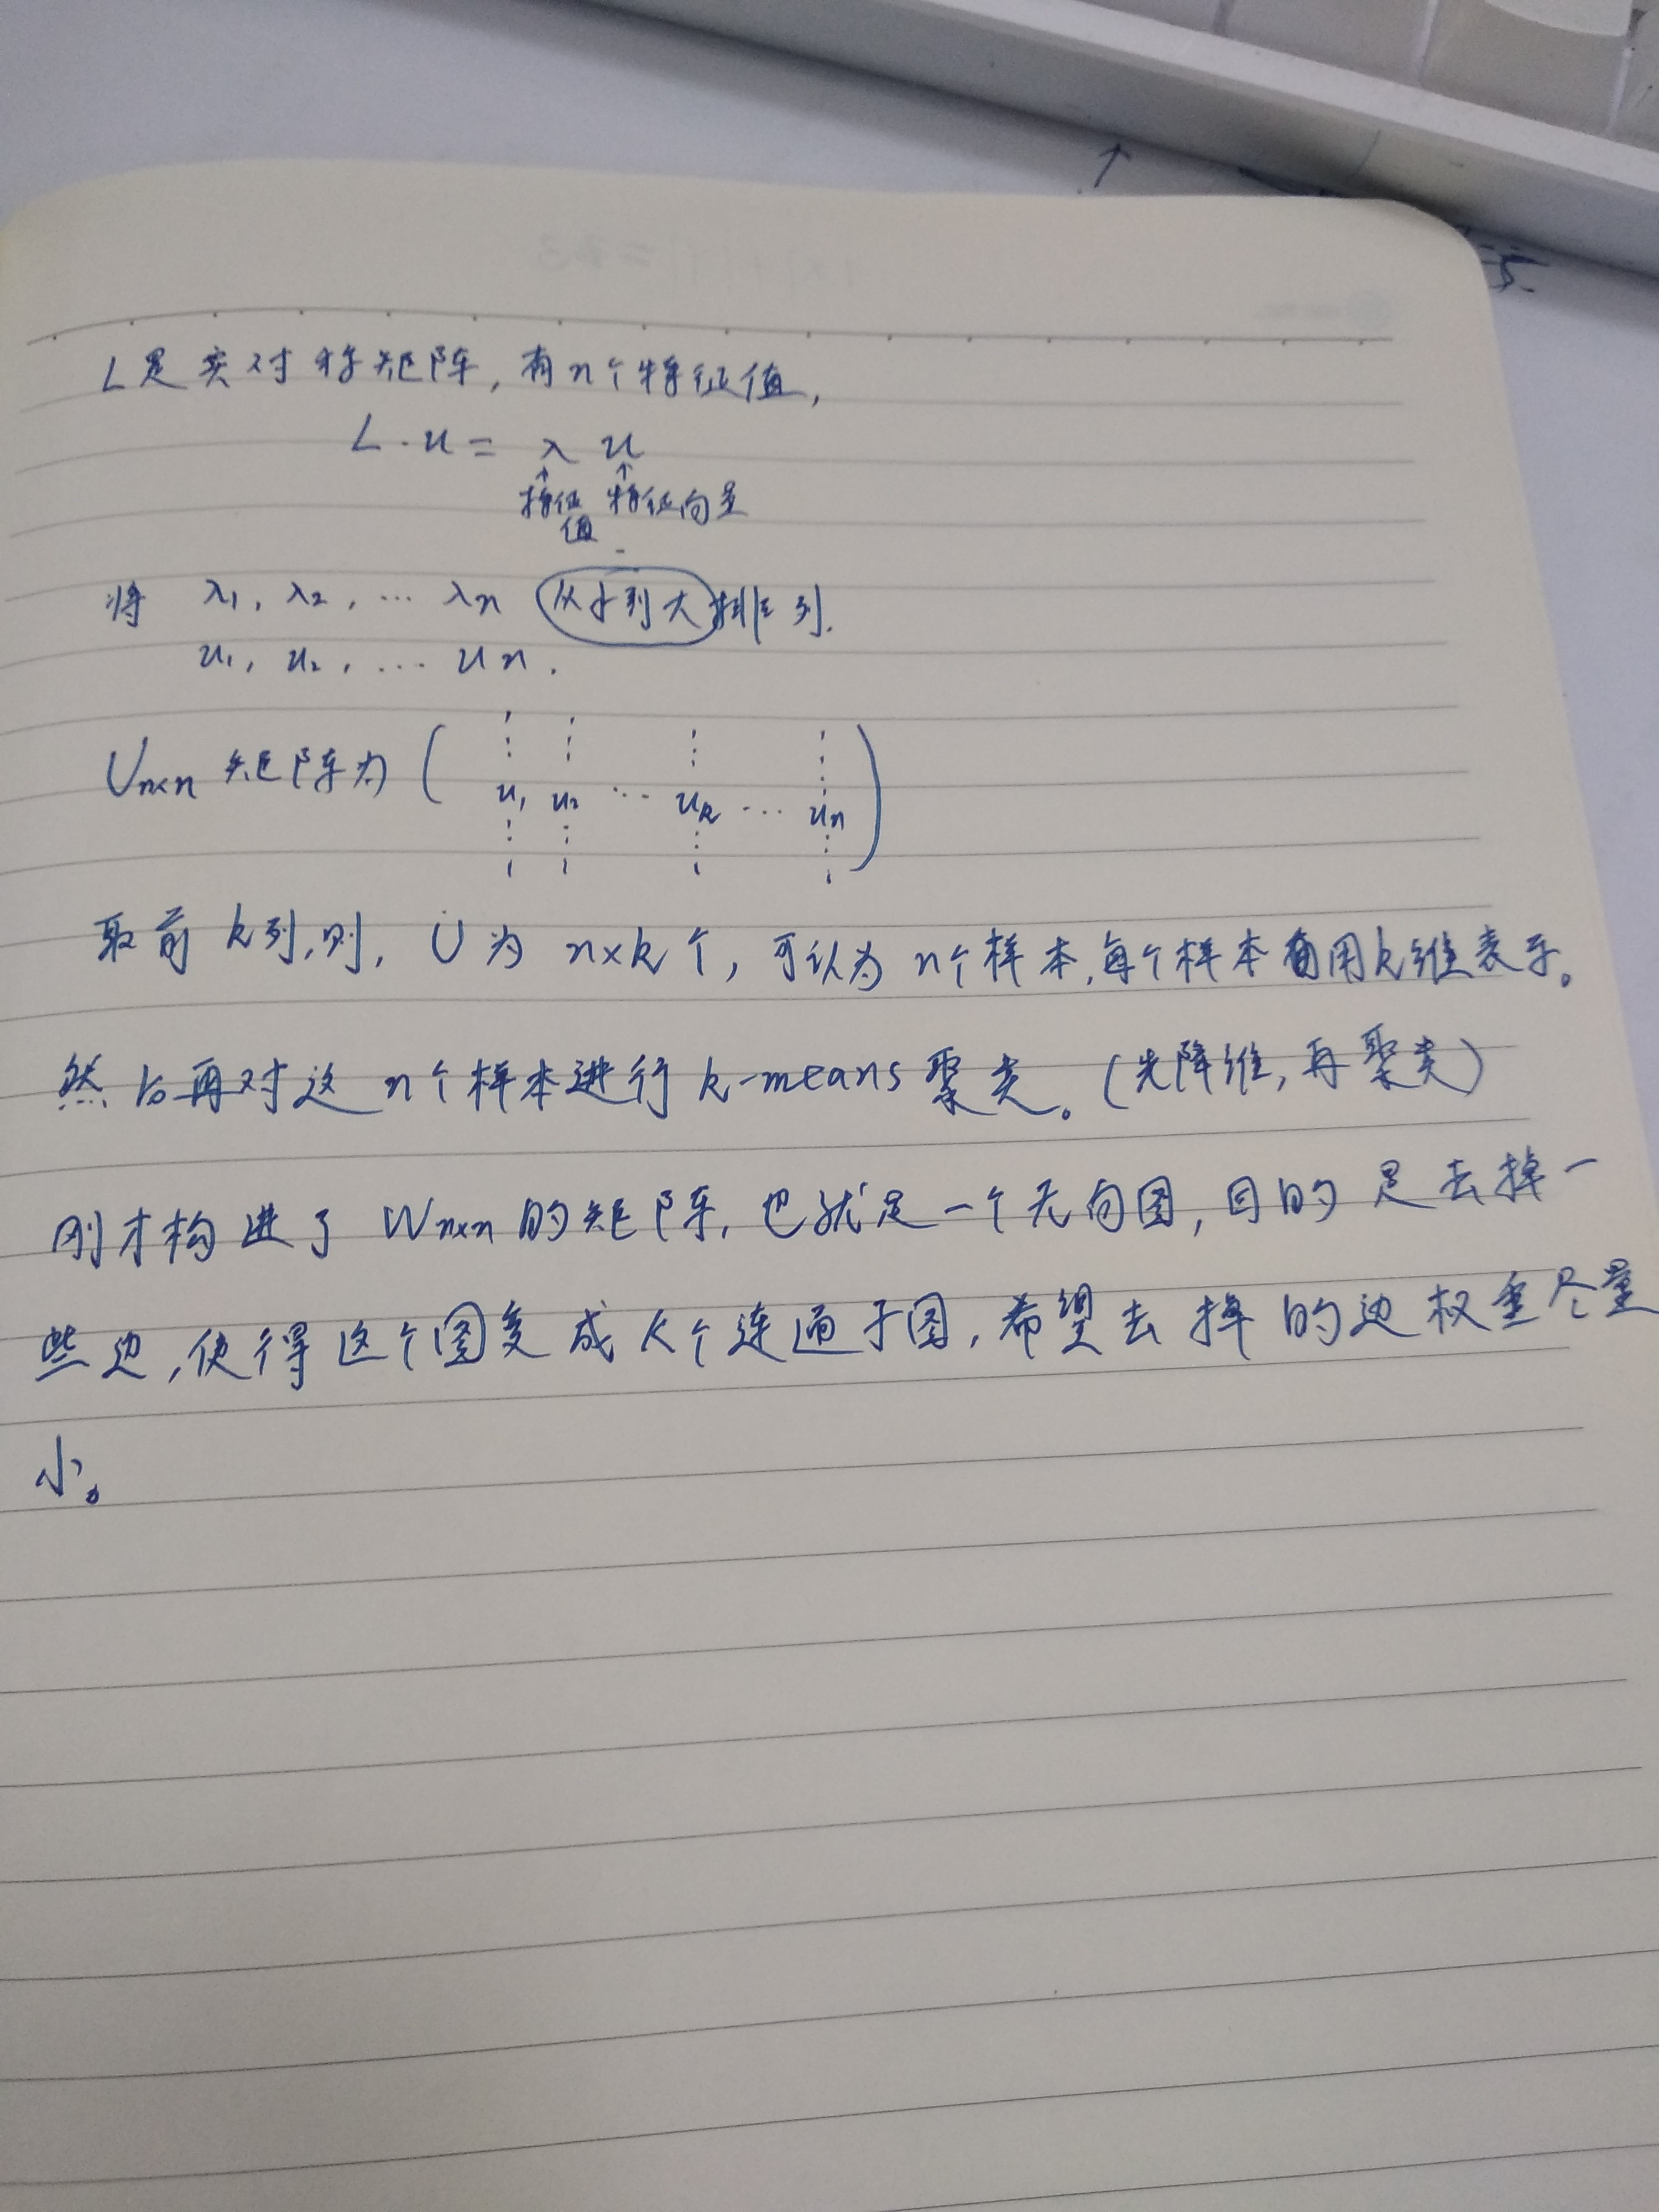 L是实对称矩阵,有n个特征值,
L·u = λ u
↑ ↑
特征 特征向量
值
将 λ1, λ2, … λn 从小到大排列.
u1, u2, … un.
Un×n 矩阵为 ( u1 u2 … uk … un )
取前k列,则, U为 n×k个, 可认为 n个样本,每个样本用k维表示。
然后再对这n个样本进行k-means聚类。(先降维,再聚类)
刚才构进了 Wn×n 的矩阵, 也就是一个无向图, 目的是去掉一
些边,使得这个图变成K个连通子图,希望去掉的边权重尽量
小。